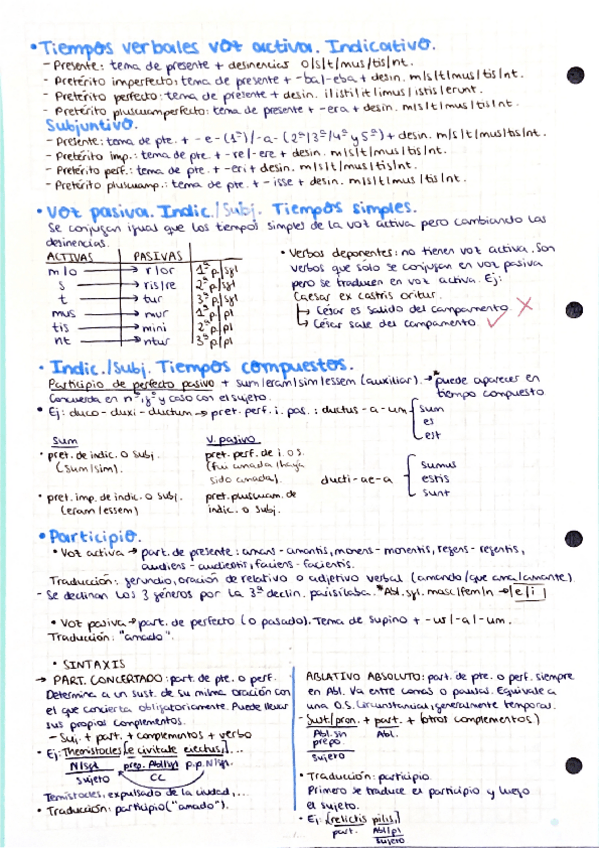 • Tiempos verbales voz activa. Indicativo.
- Presente: tema de presente + desinencias o|s|t|mus|tis|nt.
- Pretérito imperfecto: tema de presente + -ba|-eba + desin. m|s|t|mus|tis|nt.
- Pretérito perfecto: tema de presente + desin. i|isti|it|imus|istis|erunt.
- Pretérito pluscuamperfecto: tema de presente + -era + desin. m|s|t|mus|tis|nt.
Subjuntivo.
- Presente: tema de pte. + -e-(1ª)/-a-(2ª|3ª|4ª y 5ª) + desin. m|s|t|mus|tis|nt.
- Pretérito imp.: tema de pte + -re|-ere + desin. m|s|t|mus|tis|nt.
- Pretérito perf.: tema de pte. + -eri + desin. m|s|t|mus|tis|nt.
- Pretérito pluscuamp.: tema de pte. + -isse + desin. m|s|t|mus|tis|nt.
• Voz pasiva. Indic./Subj. Tiempos simples.
Se conjugan igual que los tiempos simples de la voz activa pero cambiando las
desinencias.
ACTIVAS PASIVAS
m/o → r/or 1ª p/sgl
s → ris/re 2ª p/sgl
t → tur 3ª p/sgl
mus → mur 1ª p/pl
tis → mini 2ª p/pl
nt → ntur 3ª p/pl
• Verbos deponentes: no tienen voz activa. Son
verbos que solo se conjugan en voz pasiva
pero se traducen en voz activa. Ej:
Caesar ex castris oritur.
↳ César es salido del campamento ✗
↳ César sale del campamento. ✓
• Indic./Subj. Tiempos compuestos.
Participio de perfecto pasivo + sum/eram/sim/essem (auxiliar). → puede aparecer en
tiempo compuesto
Concuerda en nº, gº y caso con el sujeto.
• Ej: duco - duxi - ductum → pret. perf. i. pas.: ductus - a - um { sum
es
est
Sum V. pasivo
• pret. de indic. o subj. pret. perf. de i. o s.
(sum/sim). (fui amada/haya
sido amada).
ducti-ae-a { sumus
estis
sunt
• pret. imp. de indic. o subj. pret. pluscuam. de
(eram/essem) indic. o subj.
• Participio.
• Voz activa → part. de presente: amans - amantis, monens - monentis, regens - regentis,
audiens - audientis, faciens - facientis.
Traducción: gerundio, oración de relativo o adjetivo verbal (amando/que ama/amante).
- Se declinan los 3 géneros por la 3ª declin. parisílaba. *Abl. sgl. masc/fem/n → e/i
• Voz pasiva → part. de perfecto (o pasado). Tema de supino + -us/-a/-um.
Traducción: "amado".
• SINTAXIS
→ PART. CONCERTADO: part. de pte. o perf.
Determina a un sust. de su misma oración con
el que concierta obligatoriamente. Puede llevar
sus propios complementos.
- Suj. + part. + complementos + verbo
• Ej: Themistocles, e civitate eiectus, ...
N/sgl prep. Abl/sgl p.p. N/sgn.
sujeto CC
Temístocles, expulsado de la ciudad, ...
• Traducción: participio ("amado").
ABLATIVO ABSOLUTO: part. de pte. o perf. siempre
en Abl. Va entre comas o pausas. Equivale a
una O.S. Circunstancial, generalmente temporal.
- Sust/pron. + part. + (otros complementos)
Abl. sin Abl.
prepo.
sujeto
• Traducción: participio.
Primero se traduce el participio y luego
el sujeto.
• Ej: relictis pilis,
part. Abl/pl
sujeto